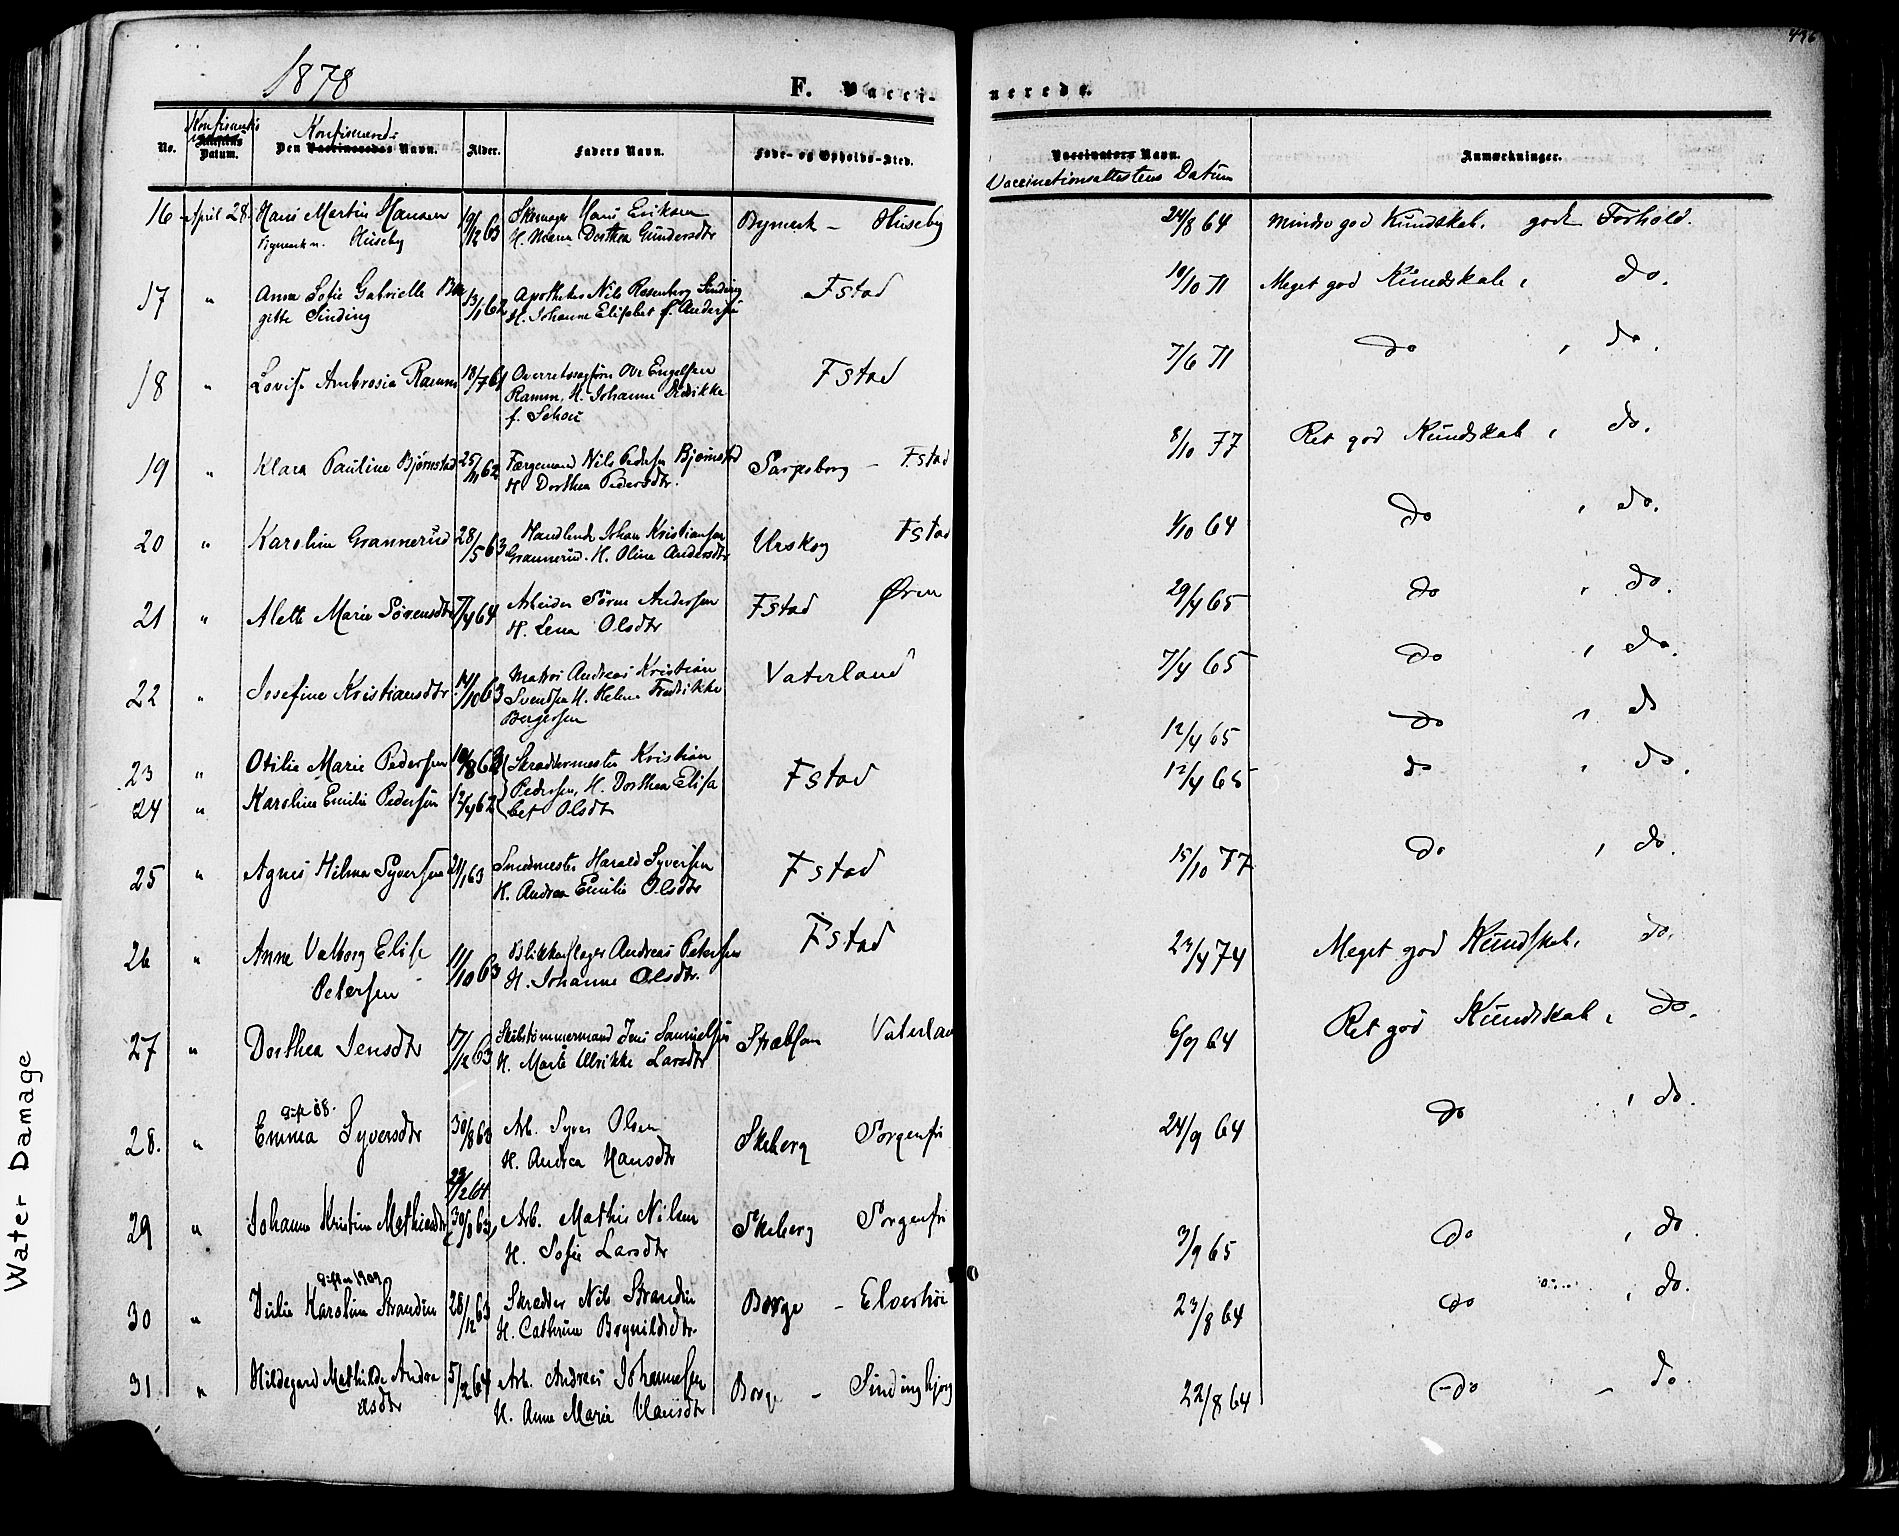 1878
F. Vacci-
nerede.
No.
Konfirmants
Datum.
Konfirmand:
Den Vaccineredes Navn.
Alder.
Faders Navn.
Føde- og Opholds-Sted.
Vaccinators Navn.
Vaccinationsattestens Datum
Anmærkninger.
16 April 28. Hans Martin Hansen 19/12 63 Skomager Hans Eriksen Bymark - Huseby 24/8 64 Mindre god Kundskab, godt Forhold.
Bymark n. Huseby H. Maren Dorthea Gundersdtr
17 " Anna Sofie Gabrielle Bir 13/1 62 Apotheker Nils Rosenberg Sinding Fstad 10/10 71 Meget god Kundskab, do.
gitte Sinding H. Johanne Elisabet f. Andersen
18 " Lovise Ambrosia Ramm 18/7 61 Overretssagfører Ove Engelsen Fstad 7/6 71 do , do.
Ramm, H. Johanne Fredrikke
f. Schou
19 " Klara Pauline Bjørnstad 25/11 62 Færgemand Nils Pedersen Bjørnstad Sarpsborg - Fstad 8/10 77 Ret god Kundskab, do.
H. Dorthea Pedersdtr.
20 " Karoline Grannerud 28/5 63 Handlende Johan Kristiansen Urskog Fstad 1/10 64 do , do.
Grannerud. H. Oline Andersdtr
21 " Alette Marie Sørensdtr 7/4 64 Arbeider Søren Andersen Fstad Øren 29/4 65 do , do.
H. Lena Olsdtr
22 " Josefine Kristiansdtr 14/10 63 Matros Andreas Kristian Vaterland 7/4 65 do , do.
Svendsen H. Helene Fredrikke
Bergersen
23 " Otilie Marie Pedersen 10/8 63 Skræddermester Kristian 12/4 65 do , do
24 " Karoline Emilie Pedersen 12/4 62 Pedersen, H. Dorthea Elisa Fstad 12/4 65 do , do.
bet Olsdtr
25 " Agnes Hilma Syversen 21/1 63 Smedmester Harald Syversen Fstad 15/10 77 do , do.
H. Andrea Emilie Olsdtr
26 " Anna Valborg Elise 11/10 63 Blikkenslager Andreas Petersen Fstad 23/4 74 Meget god Kundskab, do.
Petersen H. Johanne Olsdtr.
27 " Dorthea Jensdtr 17/12 63 Skibstømmermand Jens Samuelsen Vaterlan 6/9 64 Ret god Kundskab, do.
H. Marte Ulrikke Larsdtr
Gift 08.
28. " Emma Syversdtr 30/8 63 Arb. Syver Olsen Skeberg Sorgenfri 24/9 64 do , do.
H. Andrea Hansdtr
29 " Johanne Kristine Mathisdtr 30/8 63 Arb. Mathis Nilsen Skeberg Sorgenfri 3/9 65 do , do.
H. Sofie Larsdtr
Gift 1909
30 " Julie Karoline Strandin 28/12 63 Skrædder Nils Strandin Borge - Elverhøi 23/8 64 do , do.
H. Cathrine Brynildsdtr.
31 " Hildegard Mathilde Andre 5/2 64 Arb. Andreas Johannesen Borge - 22/8 64 do - do.
asdtr H. Anne Marie Hansdtr
Water Damage